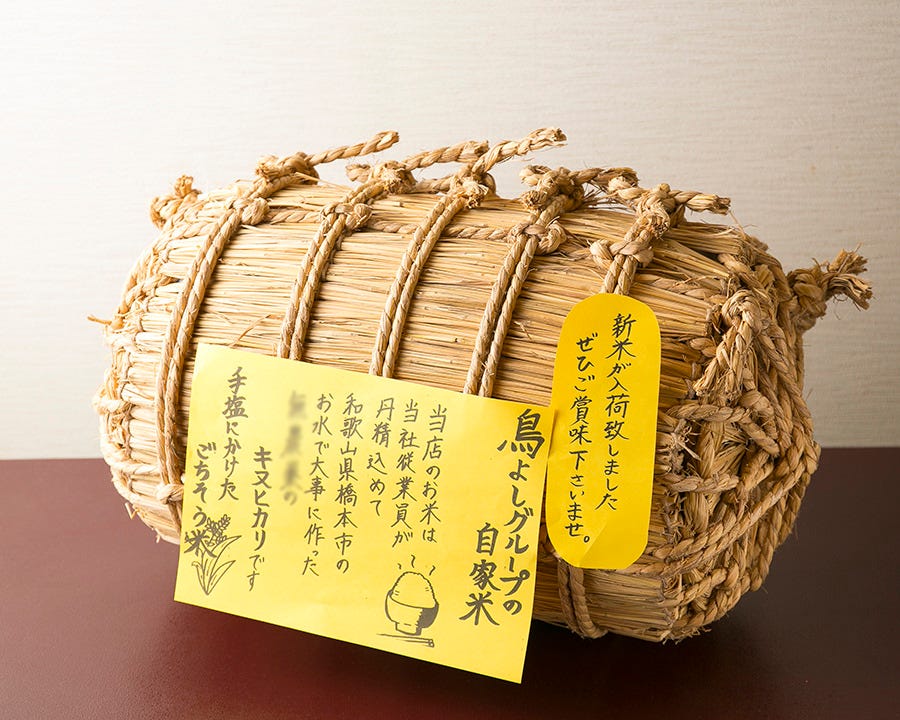 新米が入荷致しました
ぜひご賞味下さいませ。
鳥よしグループの
自家米
当店のお米は
当社従業員が
丹精込めて
和歌山県橋本市の
お水で大事に作った
の
キヌヒカリです
手塩にかけた
ごちそう米